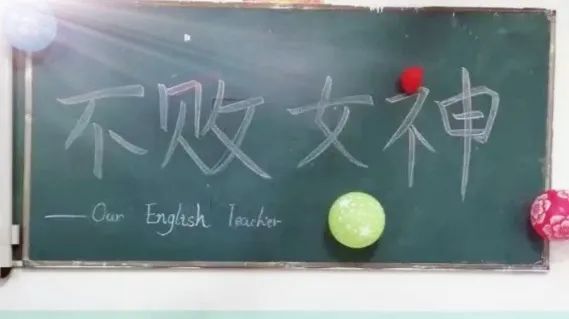 不败女神
——Our English Teacher